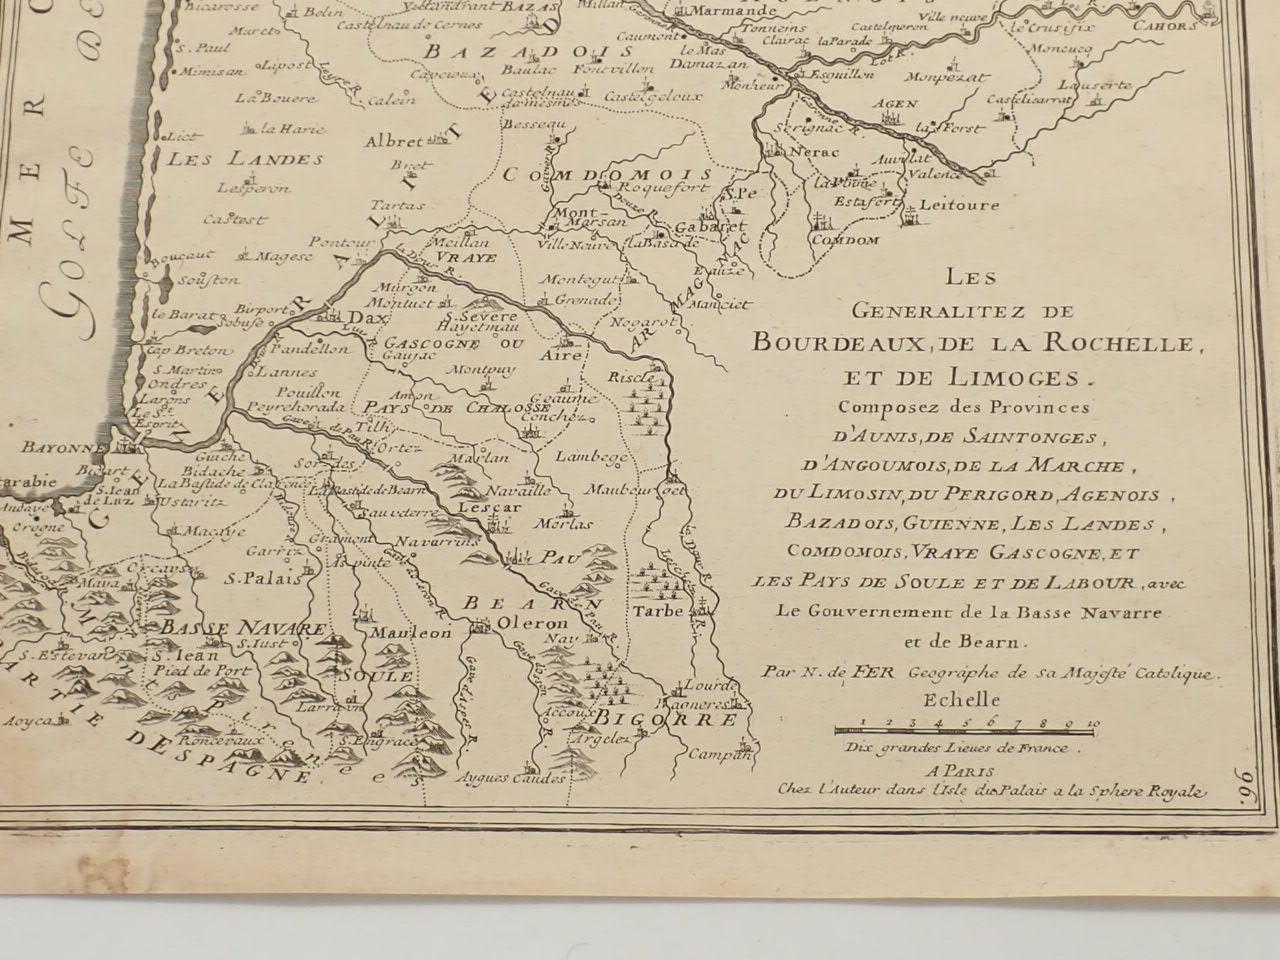 MER
GOLFE DE
Bicarosse
Belin
Castelnau de Cernes
BAZAS
Millan
Marmande
Tonneins
Clairac
la Parade
Castelmoron
Ville neuve
le Crusifix
CAHORS
Moncucq
S. Paul
Maret
BAZADOIS
Caumont
le Mas
Damazan
Lot R.
Mimisan
Lipost
Leyre R.
Capcioux
Baulac
Fonevillon
Monheur
Esguillon
Monpezat
Lauserte
La Bouere
Calein
Castelnau
Castelgeloux
AGEN
Castelsarrat
Besseau
Serignac
Garonne R.
la Forst
Liet
la Harie
Albret
Nerac
Auvilat
Valence
LES LANDES
Bret
COMDOMOIS
la Plume
Lesperon
Roquefort
S.Pe
Estafort
Leitoure
Castest
Tartas
Mont-
Marsan
Douze R.
Gabaret
COMDOM
Pontour
Meillan
Ville Neuve
la Basade
Boucaut
Magesc
VRAYE
Eauze
Souston
Murgon
Montegut
ARMAGNAC
Manciet
le Barat
Birport
Sobuse
Montuet
S. Severe
Grenade
Dax
Hayetmau
Nogarot
Cap Breton
Pandellon
Luy R.
GASCOGNE OU
Aire
S. Martin
Lannes
Gaujac
Montpuy
Riscle
Ondres
Larons
Pouillon
Amon
Geaune
Le St.
Esprit
Peyrehorada
PAYS DE CHALOSSE
Conchez
Tilh
BAYONNE
Gave de Pau R.
Ortez
Guiche
Sordes
Marlan
Lambege
Bidart
Bidache
La Bastide de Clarence
La Bastide de Bearn
Navaille
Maubourget
S. Iean
de Luz
Ustaritz
Sauveterre
Lescar
Andaye
Orogne
Macaye
Gramont
Navarrins
Morlas
Garriz
PAU
S. Palais
Aspinte
l'Adour R.
Maya
BEARN
Tarbe
BASSE NAVARE
Mauleon
Oleron
S. Estevan
S. Iust
Nav
S. Iean
Pied de Port
SOULE
Lourde
Aoyca
Larravn
Accoux
Bagneres
BIGORRE
Roncevaux
S. Engrace
Argelez
Campan
Pirenees
Aygues Caudes
PARTIE DESPAGNE
LES
GENERALITEZ DE
BOURDEAUX, DE LA ROCHELLE,
ET DE LIMOGES.
Composez des Provinces
D'AUNIS, DE SAINTONGES,
D'ANGOUMOIS, DE LA MARCHE,
DU LIMOSIN, DU PERIGORD, AGENOIS,
BAZADOIS, GUIENNE, LES LANDES,
COMDOMOIS, VRAYE GASCOGNE, ET
LES PAYS DE SOULE ET DE LABOUR, avec
Le Gouvernement de la Basse Navarre
et de Bearn.
Par N. de FER Geographe de sa Majesté Catolique.
Echelle
1 2 3 4 5 6 7 8 9 10
Dix grandes Lieues de France.
A PARIS
Chez l'Auteur dans l'Isle du Palais a la Sphere Royale
96.